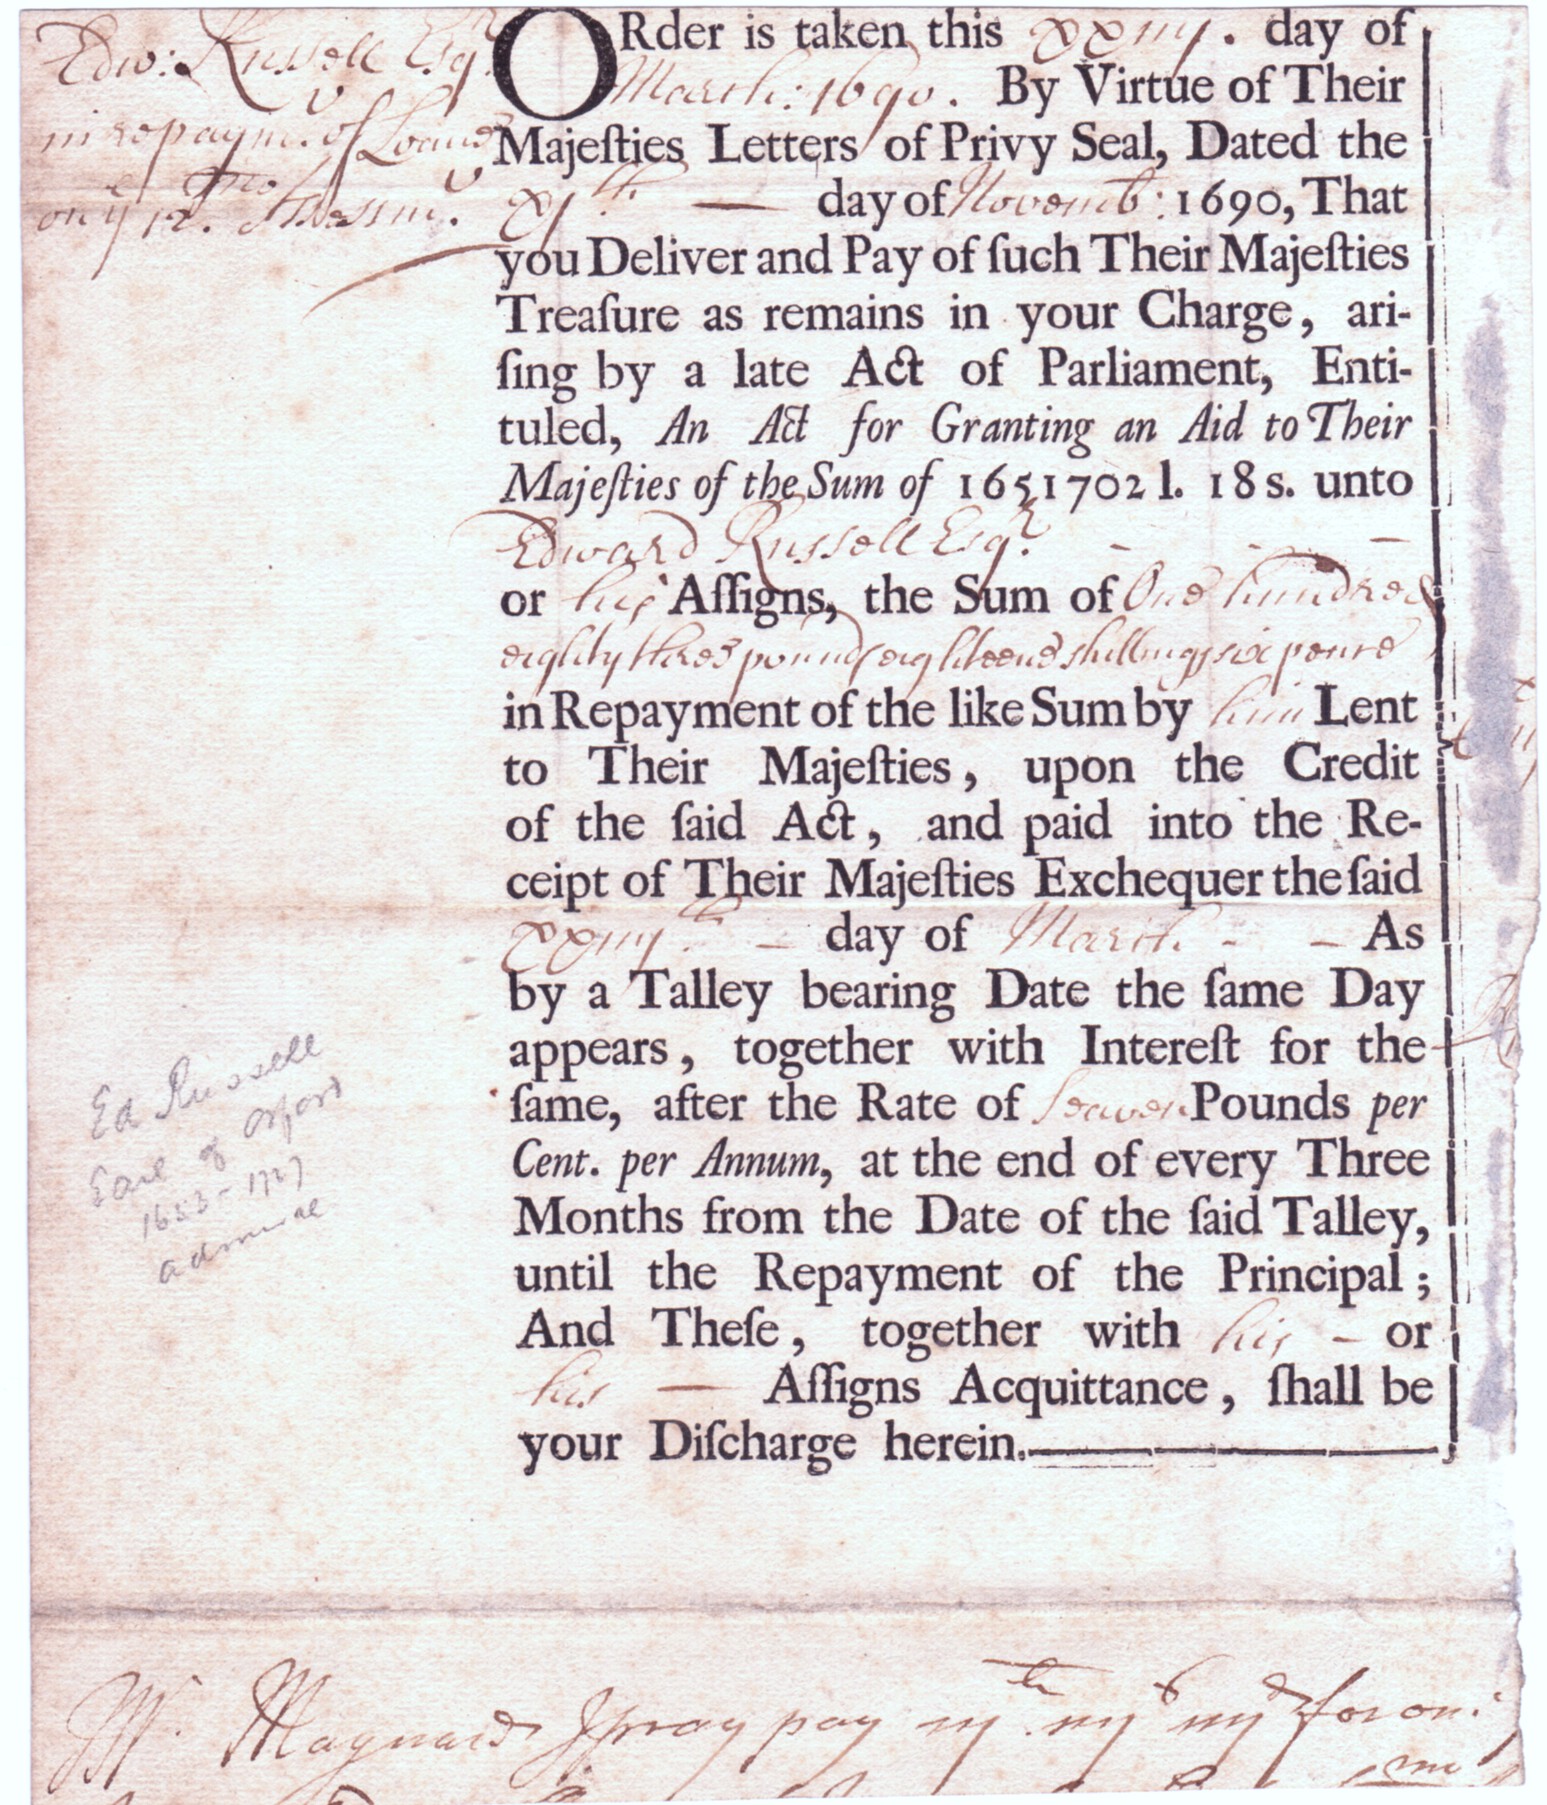 Edw: Russell Esqr
in repaym.t of Loans
on ye 12.
ORder is taken this xxiiij. day of
March: 1690. By Virtue of Their
Majeſties Letters of Privy Seal, Dated the
xjth — day of Novemb: 1690, That
you Deliver and Pay of ſuch Their Majeſties
Treaſure as remains in your Charge, ari-
ſing by a late Act of Parliament, Enti-
tuled, An Act for Granting an Aid to Their
Majeſties of the Sum of 1651702 l. 18 s. unto
Edward Russell Esqr. - - -
or his Aſſigns, the Sum of One hundred
eighty three pounds eighteene shillings six pence
in Repayment of the like Sum by him Lent
to Their Majeſties, upon the Credit
of the ſaid Act, and paid into the Re-
ceipt of Their Majeſties Exchequer the ſaid
xxiiijth - day of March - - As
by a Talley bearing Date the ſame Day
appears, together with Intereſt for the
ſame, after the Rate of Seaven Pounds per
Cent. per Annum, at the end of every Three
Months from the Date of the ſaid Talley,
until the Repayment of the Principal;
And Theſe, together with his - or
his — Aſſigns Acquittance, ſhall be
your Diſcharge herein.
Ed Russell
Earl of Orford
1653-1727
admiral
Mr. Maynard I pray pay